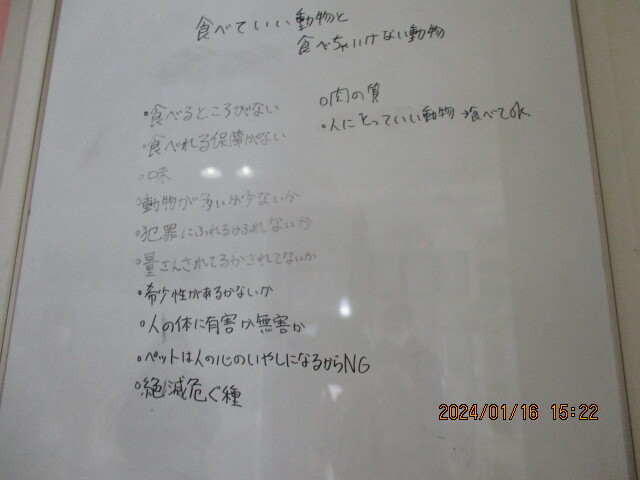 食べていい動物と
食べちゃいけない動物
•食べるところがない
•食べれる保障がない
•味
•動物が多いか少ないか
•犯罪にふれるかふれないか
•量さんされてるかされてないか
•希少性があるかないか
•人の体に有害か無害か
•ペットは人の心のいやしになるからNG
•絶滅危ぐ種
•肉の質
•人にとっていい動物→食べてok.
2024/01/16 15:22